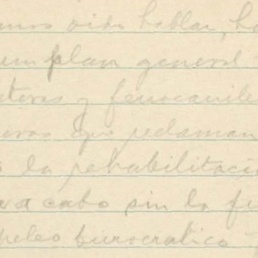 mos oido hablar, ha
un plan general
teras y ferrocarrile
oras que reclaman
la rehabilitacio
va cabo sin la fi
peleo burocratico